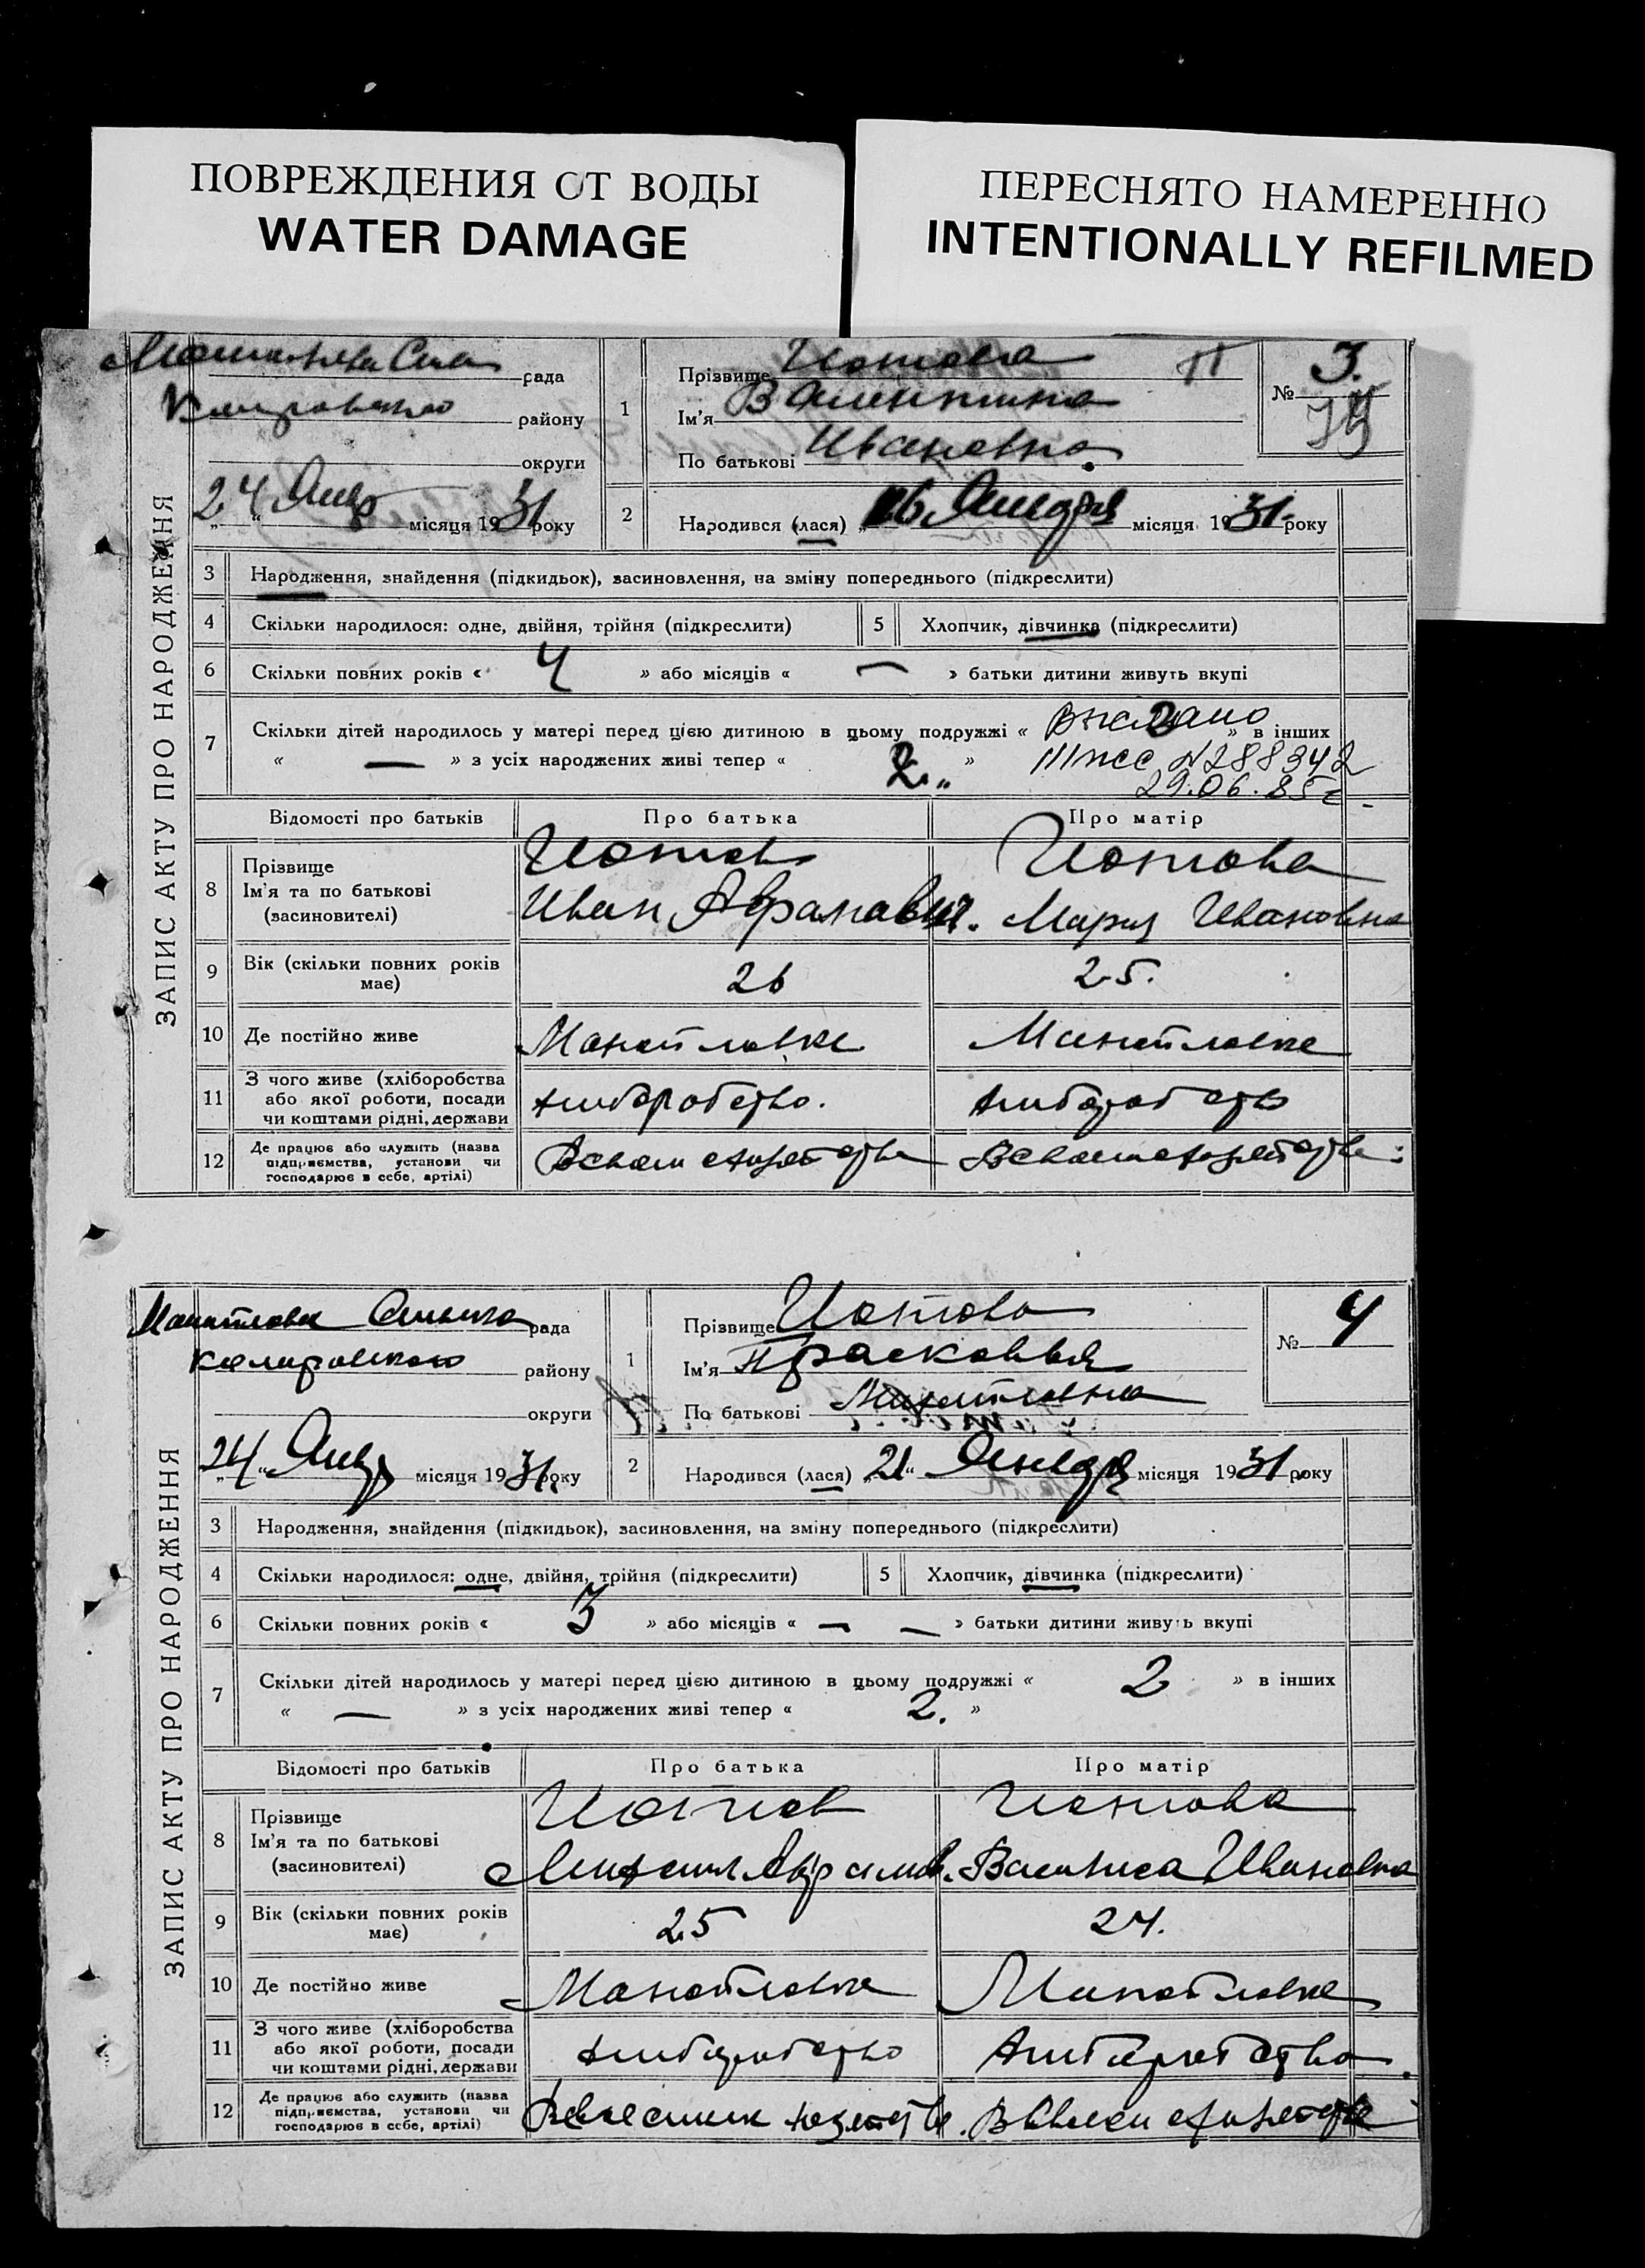 ПОВРЕЖДЕНИЯ ОТ ВОДЫ
WATER DAMAGE
ПЕРЕСНЯТО НАМЕРЕННО
INTENTIONALLY REFILMED
ЗАПИС АКТУ ПРО НАРОДЖЕННЯ
рада
району
округи
24 Янвр місяця 1931 року
1
Прізвище Иотова
Ім'я Валентина
По батькові Ивановна
№ 3.
2
Народився (лася) „16 Января місяця 1931. року
3 Народження, знайдення (підкидьок), засиновлення, на зміну попереднього (підкреслити)
4 Скільки народилося: одне, двійня, трійня (підкреслити) 5 Хлопчик, дівчинка (підкреслити)
6 Скільки повних років « 4 » або місяців « — » батьки дитини живуть вкупі
7 Скільки дітей народилось у матері перед цією дитиною в цьому подружжі « 2 » в інших
« — » з усіх народжених живі тепер « 2 „ »
N288342
29.06.85г.
Відомості про батьків Про батька Про матір
8 Прізвище
Ім'я та по батькові
(засиновителі)
Иотов
Иван Аврамавич.
Иотова
Мария Ивановна
9 Вік (скільки повних років має) 26 25.
10 Де постійно живе Манойловке Манойловке
11 З чого живе (хліборобства
або якої роботи, посади
чи коштами рідні, держави
хлиборобство. хлиборобство
12 Де працює або служить (назва
підприємства, установи чи
господарює в себе, артілі)
ЗАПИС АКТУ ПРО НАРОДЖЕННЯ
рада
району
округи
24 Янвр місяця 1931. року
1
Прізвище Иотова
Ім'я Прасковья
По батькові Михайловна
№ 4
2
Народився (лася) „21“ Января місяця 1931 року
3 Народження, знайдення (підкидьок), засиновлення, на зміну попереднього (підкреслити)
4 Скільки народилося: одне, двійня, трійня (підкреслити) 5 Хлопчик, дівчинка (підкреслити)
6 Скільки повних років « 3 » або місяців « — — » батьки дитини живуть вкупі
7 Скільки дітей народилось у матері перед цією дитиною в цьому подружжі « 2 » в інших
« — » з усіх народжених живі тепер « 2. »
Відомості про батьків Про батька Про матір
8 Прізвище
Ім'я та по батькові
(засиновителі)
Иотов
Михаил Аврамов.
Иотова
Василиса Ивановна
9 Вік (скільки повних років має) 25 24.
10 Де постійно живе Манойловке Манойловке
11 З чого живе (хліборобства
або якої роботи, посади
чи коштами рідні, держави
хлиборобство хлиборобство.
12 Де працює або служить (назва
підприємства, установи чи
господарює в себе, артілі)